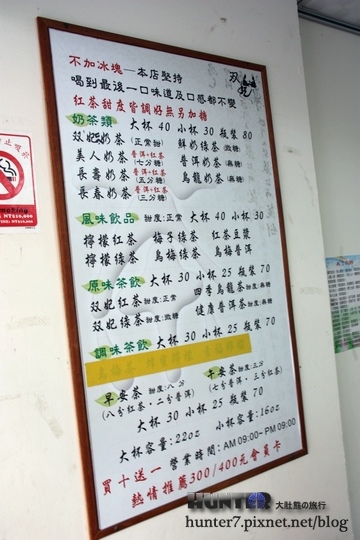 双妃
不加冰塊—本店堅持
喝到最後一口味道及口感都不變
紅茶甜度皆調好無另加糖
奶茶類 大杯 40 小杯 30 瓶裝 80
双妃奶茶(正常甜) 鮮奶綠茶(微糖)
美人奶茶 普洱+紅茶(七分糖) 普洱奶茶(無糖)
長壽奶茶 普洱+紅茶(五分糖) 烏龍奶茶(無糖)
長春奶茶 普洱+紅茶(三分糖)
風味飲品 甜度:正常 大杯 40 小杯 30
檸檬紅茶 梅子綠茶 紅茶豆漿
檸檬綠茶 烏梅綠茶 烏梅普洱
原味茶飲 大杯 30 小杯 25 瓶裝 70
双妃紅茶 甜度:正常 四季烏龍茶 甜度:無糖
双妃綠茶 甜度:微糖 健康普洱茶 甜度:無糖
調味茶飲 大杯 30 小杯 25 瓶裝 70
早安茶 甜度:八分 午安茶 甜度:三分
(八分紅茶·二分普洱) (七分普洱·三分紅茶)
大杯 30 小杯 25 瓶裝 70
大杯容量:22oz 小杯容量:16oz
營業時間:AM 09:00~PM 09:00
買十送一
熱情推薦300/400元會員卡
HUNTER 大肚熊の旅行
hunter7.pixnet.net/blog